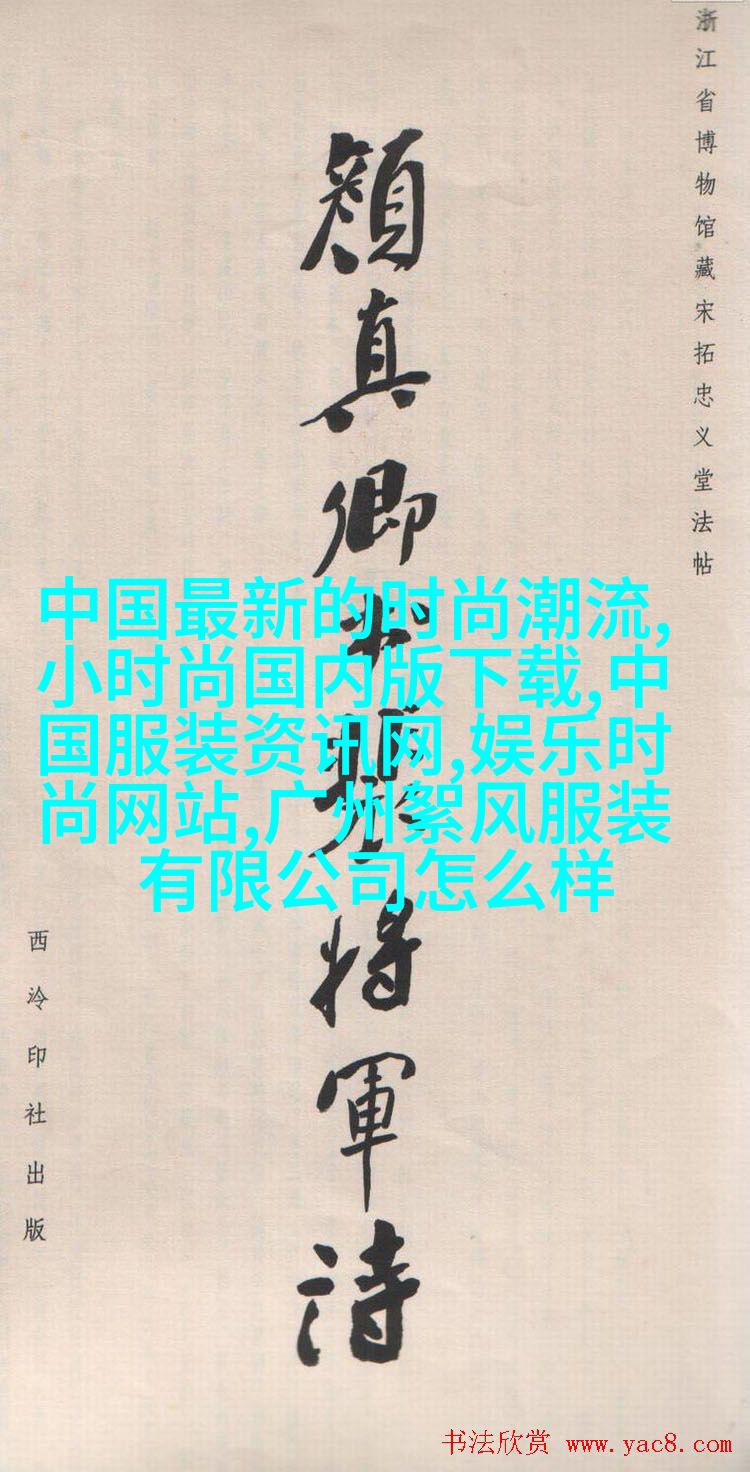 浙江省博物馆藏宋拓忠义堂法帖
顔真卿裴将軍詩
中国最新的时尚潮流,
小时尚国内版下载,中
国服装资讯网,娱乐时
尚网站,广州絮风服装
有限公司怎么样
西泠印社出版
书法欣赏 www.yac8.com